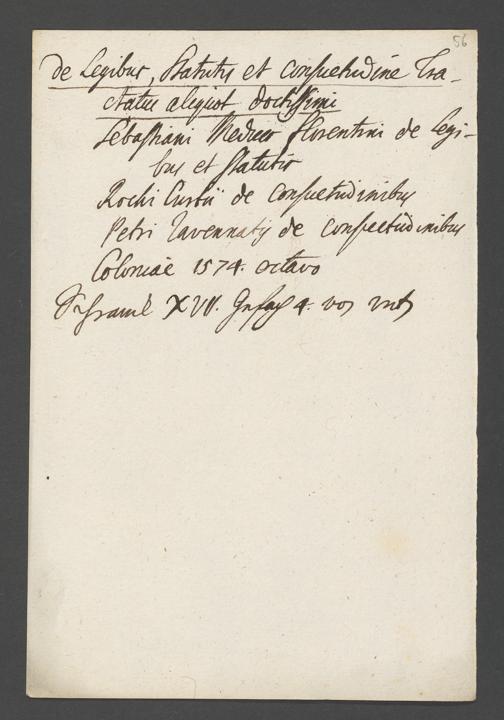 56
de Legibus, Statutis et consuetudine Tra-
ctatus aliquot doctissimi
Sebastiani Medices florentini de Legi-
bus et statutis
Rochi Curtii de consuetudinibus
Petri Ravennatis de consuetudinibus
Coloniae 1574. octavo
XVII. 4. von